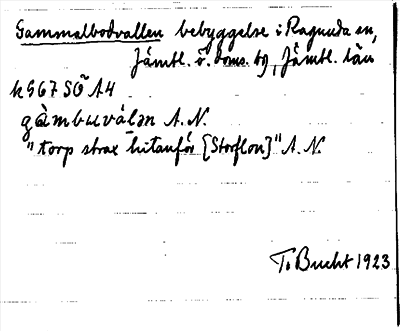 Gammalbodvallen bebyggelse i Ragunda sn,
Jämtl. ö. doms. tg, Jämtl. län
k967 SÖ A4
gàmbuválən A.N.
"torp strax hitanför [Storflon]" A.N.
T. Bucht 1923